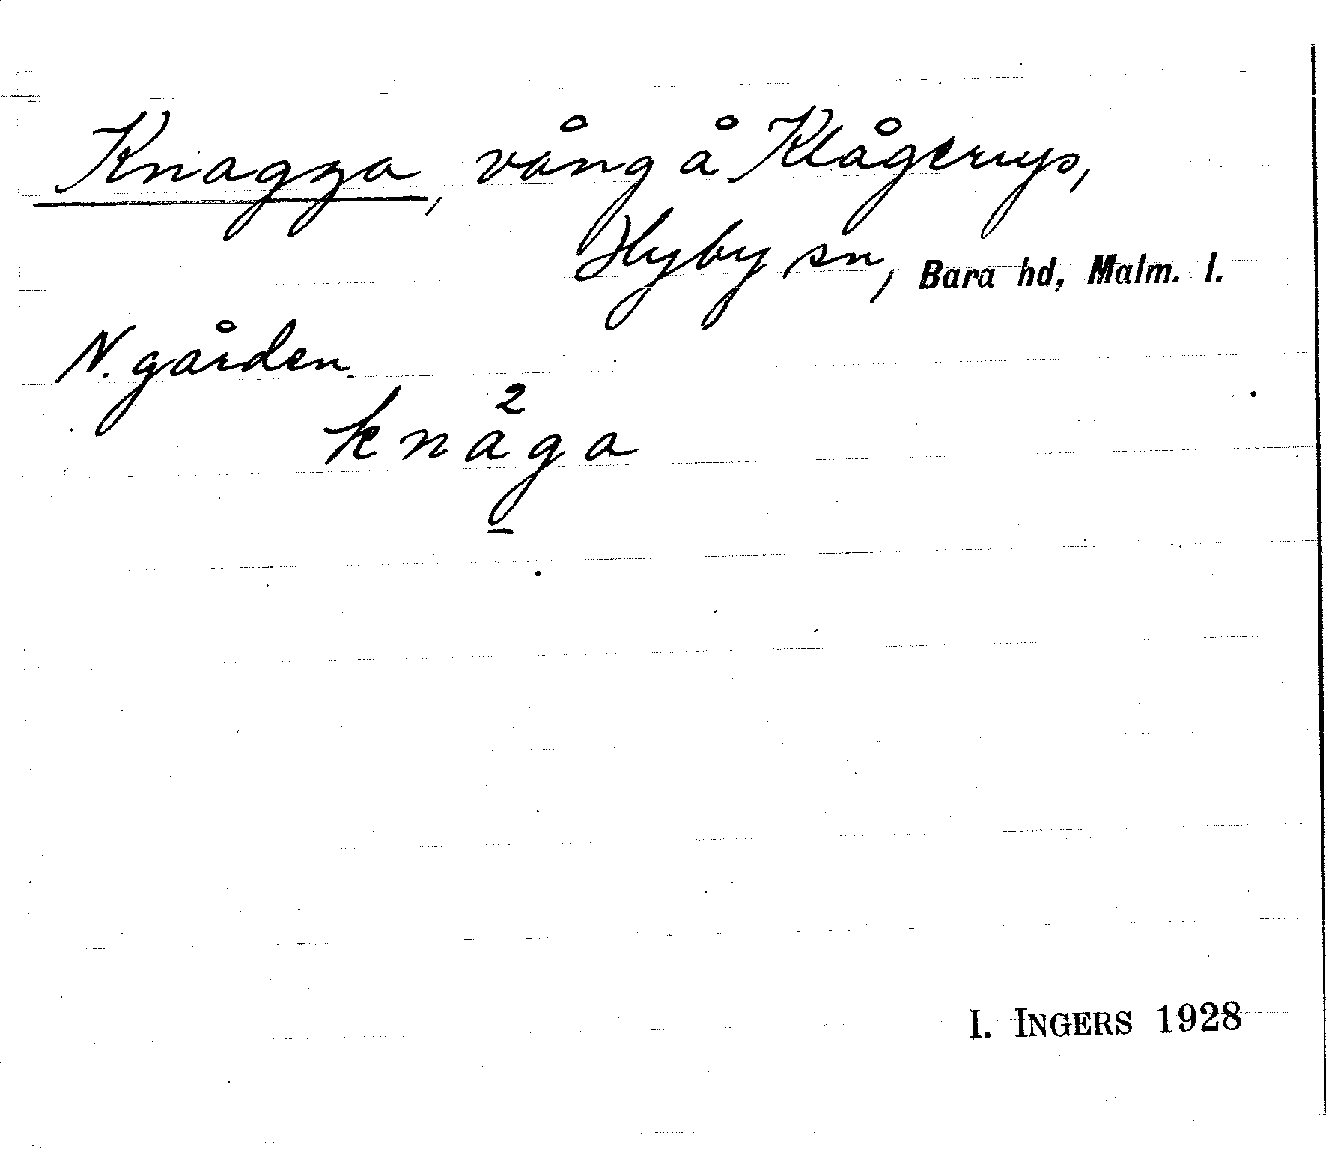 Knagga, vång å Klågerup,
Hyby sn, Bara hd, Malm. l.
N. gården.
2
knåga
I. INGERS 1928